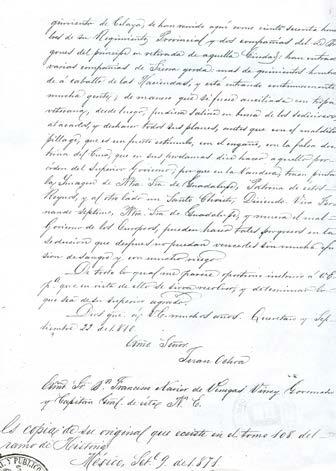 gimiento de Celaya, se han reunido aquí como ciento sesenta hombres
de su Regimiento, Provincial y dos compañias del de Dra
gones del principe en retirada de aquella Ciudad: han entrado
varias compañias de Sierra gorda: mas de quinientos hombres
de á caballo de las Haciendas, y está entrando continuamente
mucha gente; de manera que si fuese auxiliada con tropa
veterana, desde luego, pudiera salirse en busca de los sediciosos
atacarlos, y deshacer todos sus planes, antes que con el maldito
pillage, que es un fuerte estimulo, con el engaño, con la falsa doc
trina del Cura, que en sus proclamas dice hacer aquello por
orden del Superior Govierno, porque en la bandera traen puesta
la Imagen de Ntra Sra de Guadalupe, Patrona de estos
Reynos, y al otro lado un Santo Christo, Diciendo. Viva Fer
nando Septimo, Ntra Sra de Guadalupe, y muera el mal
Govierno de los Europeos, puedan hacer tales progresos en la
sedicion que despues no puedan vencerlos sin mucha efu
sion de sangre y con mucho riesgo.
De todo lo qual me parece oportuno instruir á V.E.
pª que en vista de ello se sirva resolver, y determinar lo
que sea de su superior agrado.
Dios gue. á V.E. muchos años. Queretaro y Sep
tiembre 22 de 1810.
Exmo Señor.
Teran Ochoa
Exmo Sr. Dn Francisco Xavier de Venegas Virrey Governador
y Capitan Gral. de esta N. E.
Es copia de su original que ecsiste en el tomo 108 del
ramo de Historia
México, Set. 9. de 1871.
Y PUBLICO